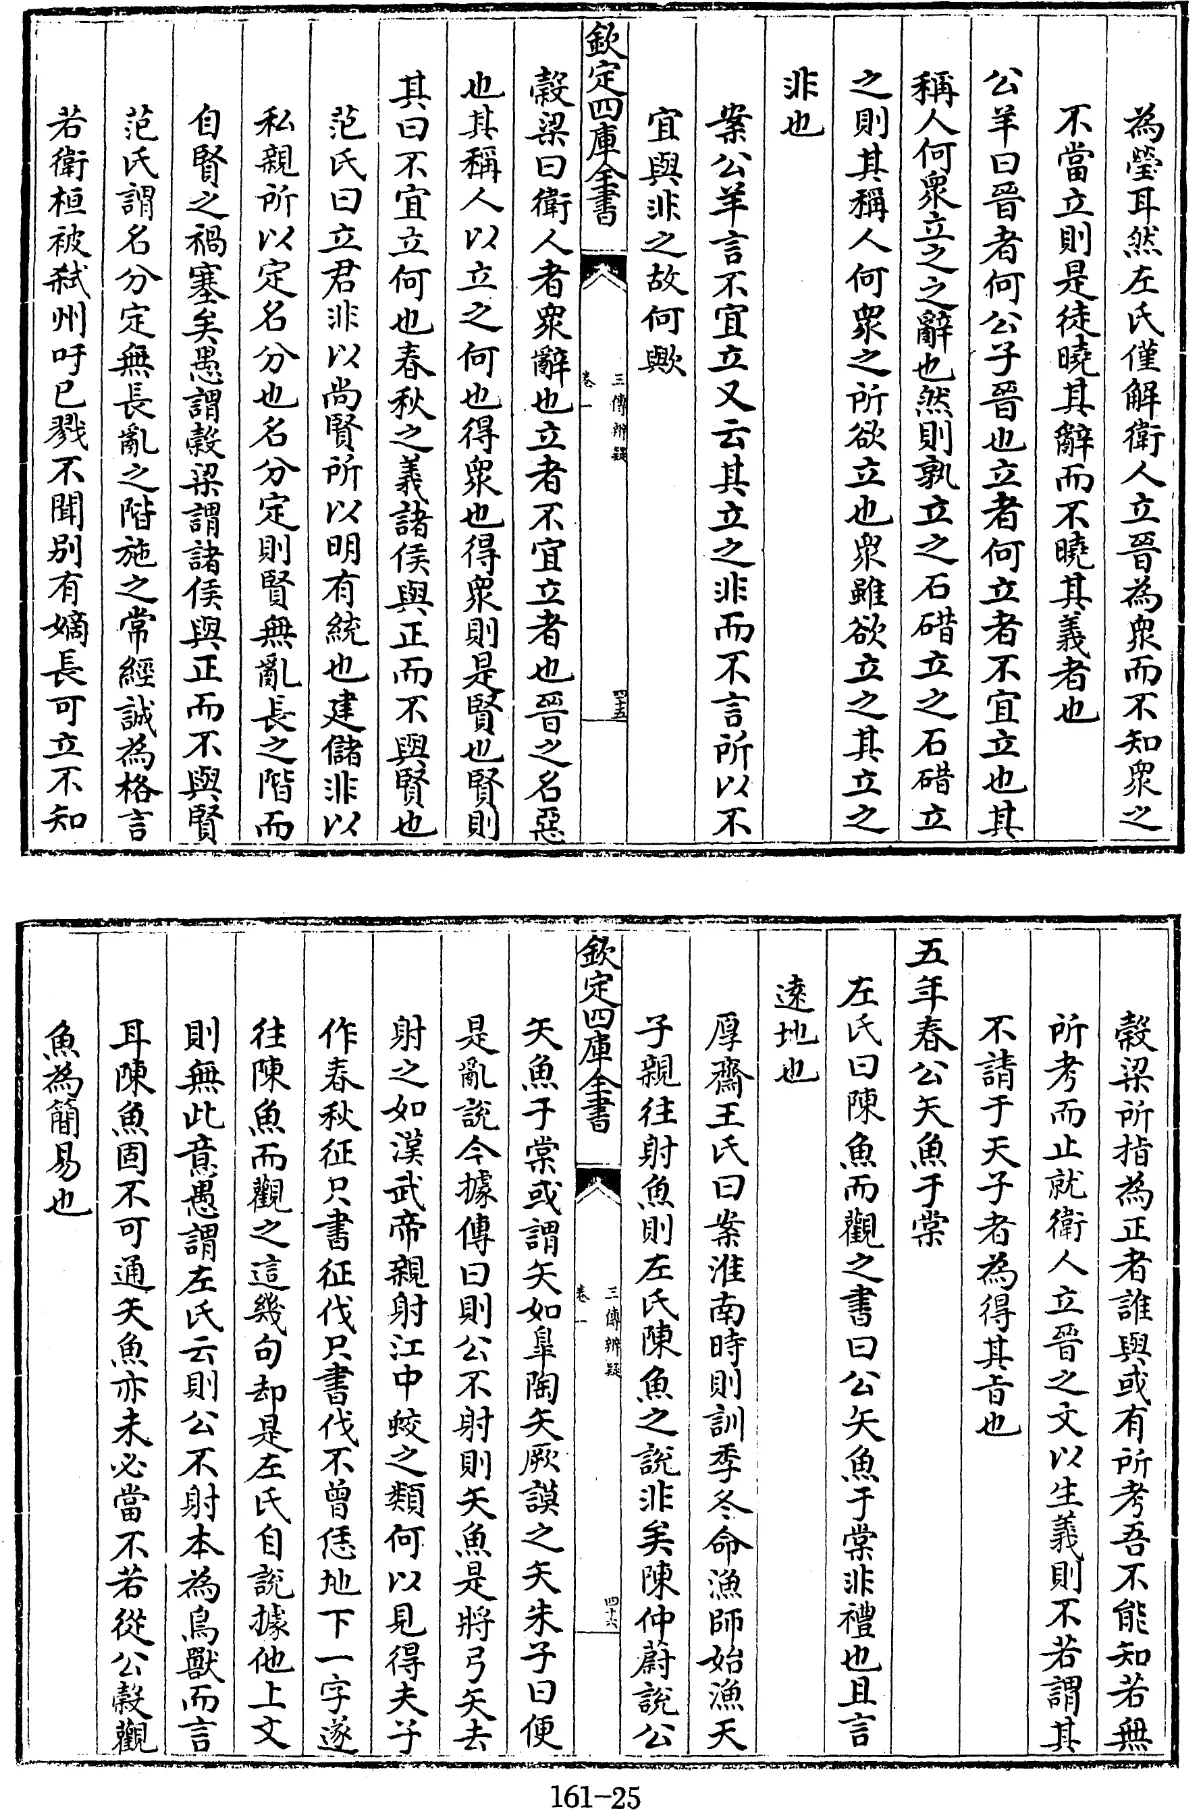 為瑩耳然左氏僅解衛人立晉為衆而不知衆之
不當立則是徒曉其辭而不曉其義者也
公羊曰晉者何公子晉也立者何立者不宜立也其
稱人何衆立之之辭也然則孰立之石碏立之石碏立
之則其稱人何衆之所欲立也衆雖欲立之其立之
非也
案公羊言不宜立又云其立之非而不言所以不
宜與非之故何歟
欽定四庫全書
三傳辨疑
卷一
四十五
榖梁曰衛人者衆辭也立者不宜立者也晉之名惡
也其稱人以立之何也得衆也得衆則是賢也賢則
其曰不宜立何也春秋之義諸侯與正而不與賢也
范氏曰立君非以尚賢所以明有統也建儲非以
私親所以定名分也名分定則賢無亂長之階而
自賢之禍塞矣愚謂榖梁謂諸侯與正而不與賢
范氏謂名分定無長亂之階施之常經誠為格言
若衛桓被弑州吁已戮不聞别有嫡長可立不知
榖梁所指為正者誰與或有所考吾不能知若無
所考而止就衛人立晉之文以生義則不若謂其
不請于天子者為得其旨也
五年春公矢魚于棠
左氏曰陳魚而觀之書曰公矢魚于棠非禮也且言
逺地也
厚齋王氏曰案淮南時則訓季冬命漁師始漁天
子親往射魚則左氏陳魚之說非矣陳仲蔚說公
欽定四庫全書
三傳辨疑
卷一
四十六
矢魚于棠或謂矢如臯陶矢厥謨之矢朱子曰便
是亂說今據傳曰則公不射則矢魚是將弓矢去
射之如漢武帝親射江中蛟之類何以見得夫子
作春秋征只書征伐只書伐不曾恁地下一字遂
往陳魚而觀之這幾句却是左氏自說據他上文
則無此意愚謂左氏云則公不射本為鳥獸而言
耳陳魚固不可通矢魚亦未必當不若從公榖觀
魚為簡易也
161-25